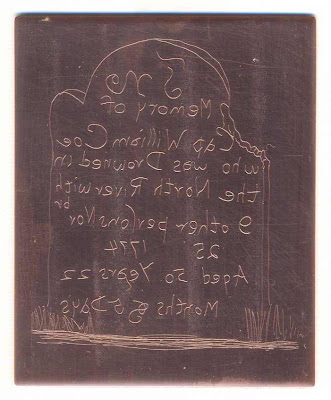 Memory of
Cap William Coe
who was Drowned in
the North River with
9 other perſons Nov br
25 1774
Aged 50. Years 22
Months & 5 Days